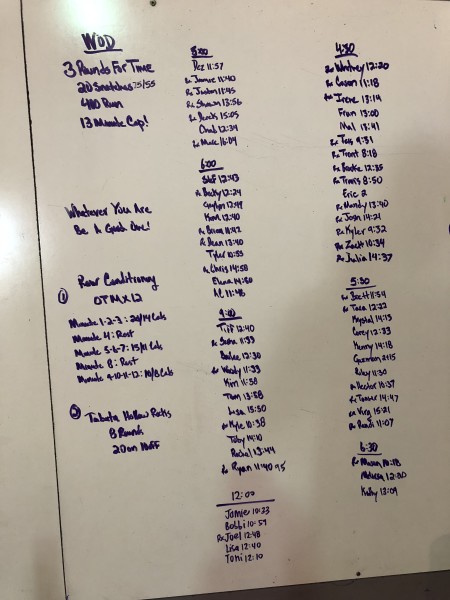 WOD
3 Rounds For Time
20 Snatches 75/55
400 Run
13 Minute Cap!
Whatever You Are
Be A Good One!
Rower Conditioning
① OTM X 12
Minute 1-2-3: 20/14 Cals
Minute 4: Rest
Minute 5-6-7: 15/11 Cals
Minute 8: Rest
Minute 9-10-11-12: 10/8 Cals
② Tabata Hollow Rocks
8 Rounds
20 on 10 OFF
5:00
Dez 11:57
Rx Jamie 11:40
Rx Justin 11:45
Rx Shawn 13:56
Rx 15:05
Chad 12:34
Rx Marc 16:04
6:00
Stef 12:43
Rx Becky 12:24
12:49
Kim 12:40
Rx Brian 11:42
Rx Dean 13:40
Tyler 10:55
Rx Chris 14:58
Elena 14:50
Al 11:48
9:00
Tiff 12:40
Rx 11:33
12:30
Rx Wendy 11:33
Kim 11:38
Tom 13:58
Lisa 15:30
Rx Kyle 10:38
Toby 14:10
Rachel 13:44
Rx Ryan 11:40 95
12:00
Jamie 10:23
Bobbi 10:59
Rx Joel 12:48
Lisa 12:40
Toni 12:10
4:30
Rx Whitney 12:20
Rx Cason 11:18
Rx Irene 13:14
Fran 13:00
Mal 13:41
Rx Tais 9:31
Rx Trent 8:18
Rx Brooke 12:35
Rx Travis 8:50
Eric 2
Rx Mandy 13:40
Rx Josh 14:21
Rx Kyler 9:32
Rx Zach 10:34
Rx Julia 14:37
5:30
Rx Brett 11:54
Rx Tara 12:22
Krystal 14:13
Corey 12:33
Kenny 14:18
Guzman 2+15
Riley 11:30
Rx Hector 10:37
Rx Tamar 14:47
Rx Virg 15:21
Rx 11:07
6:30
Rx Mason 10:18
Melissa 12:30
Kathy 13:09